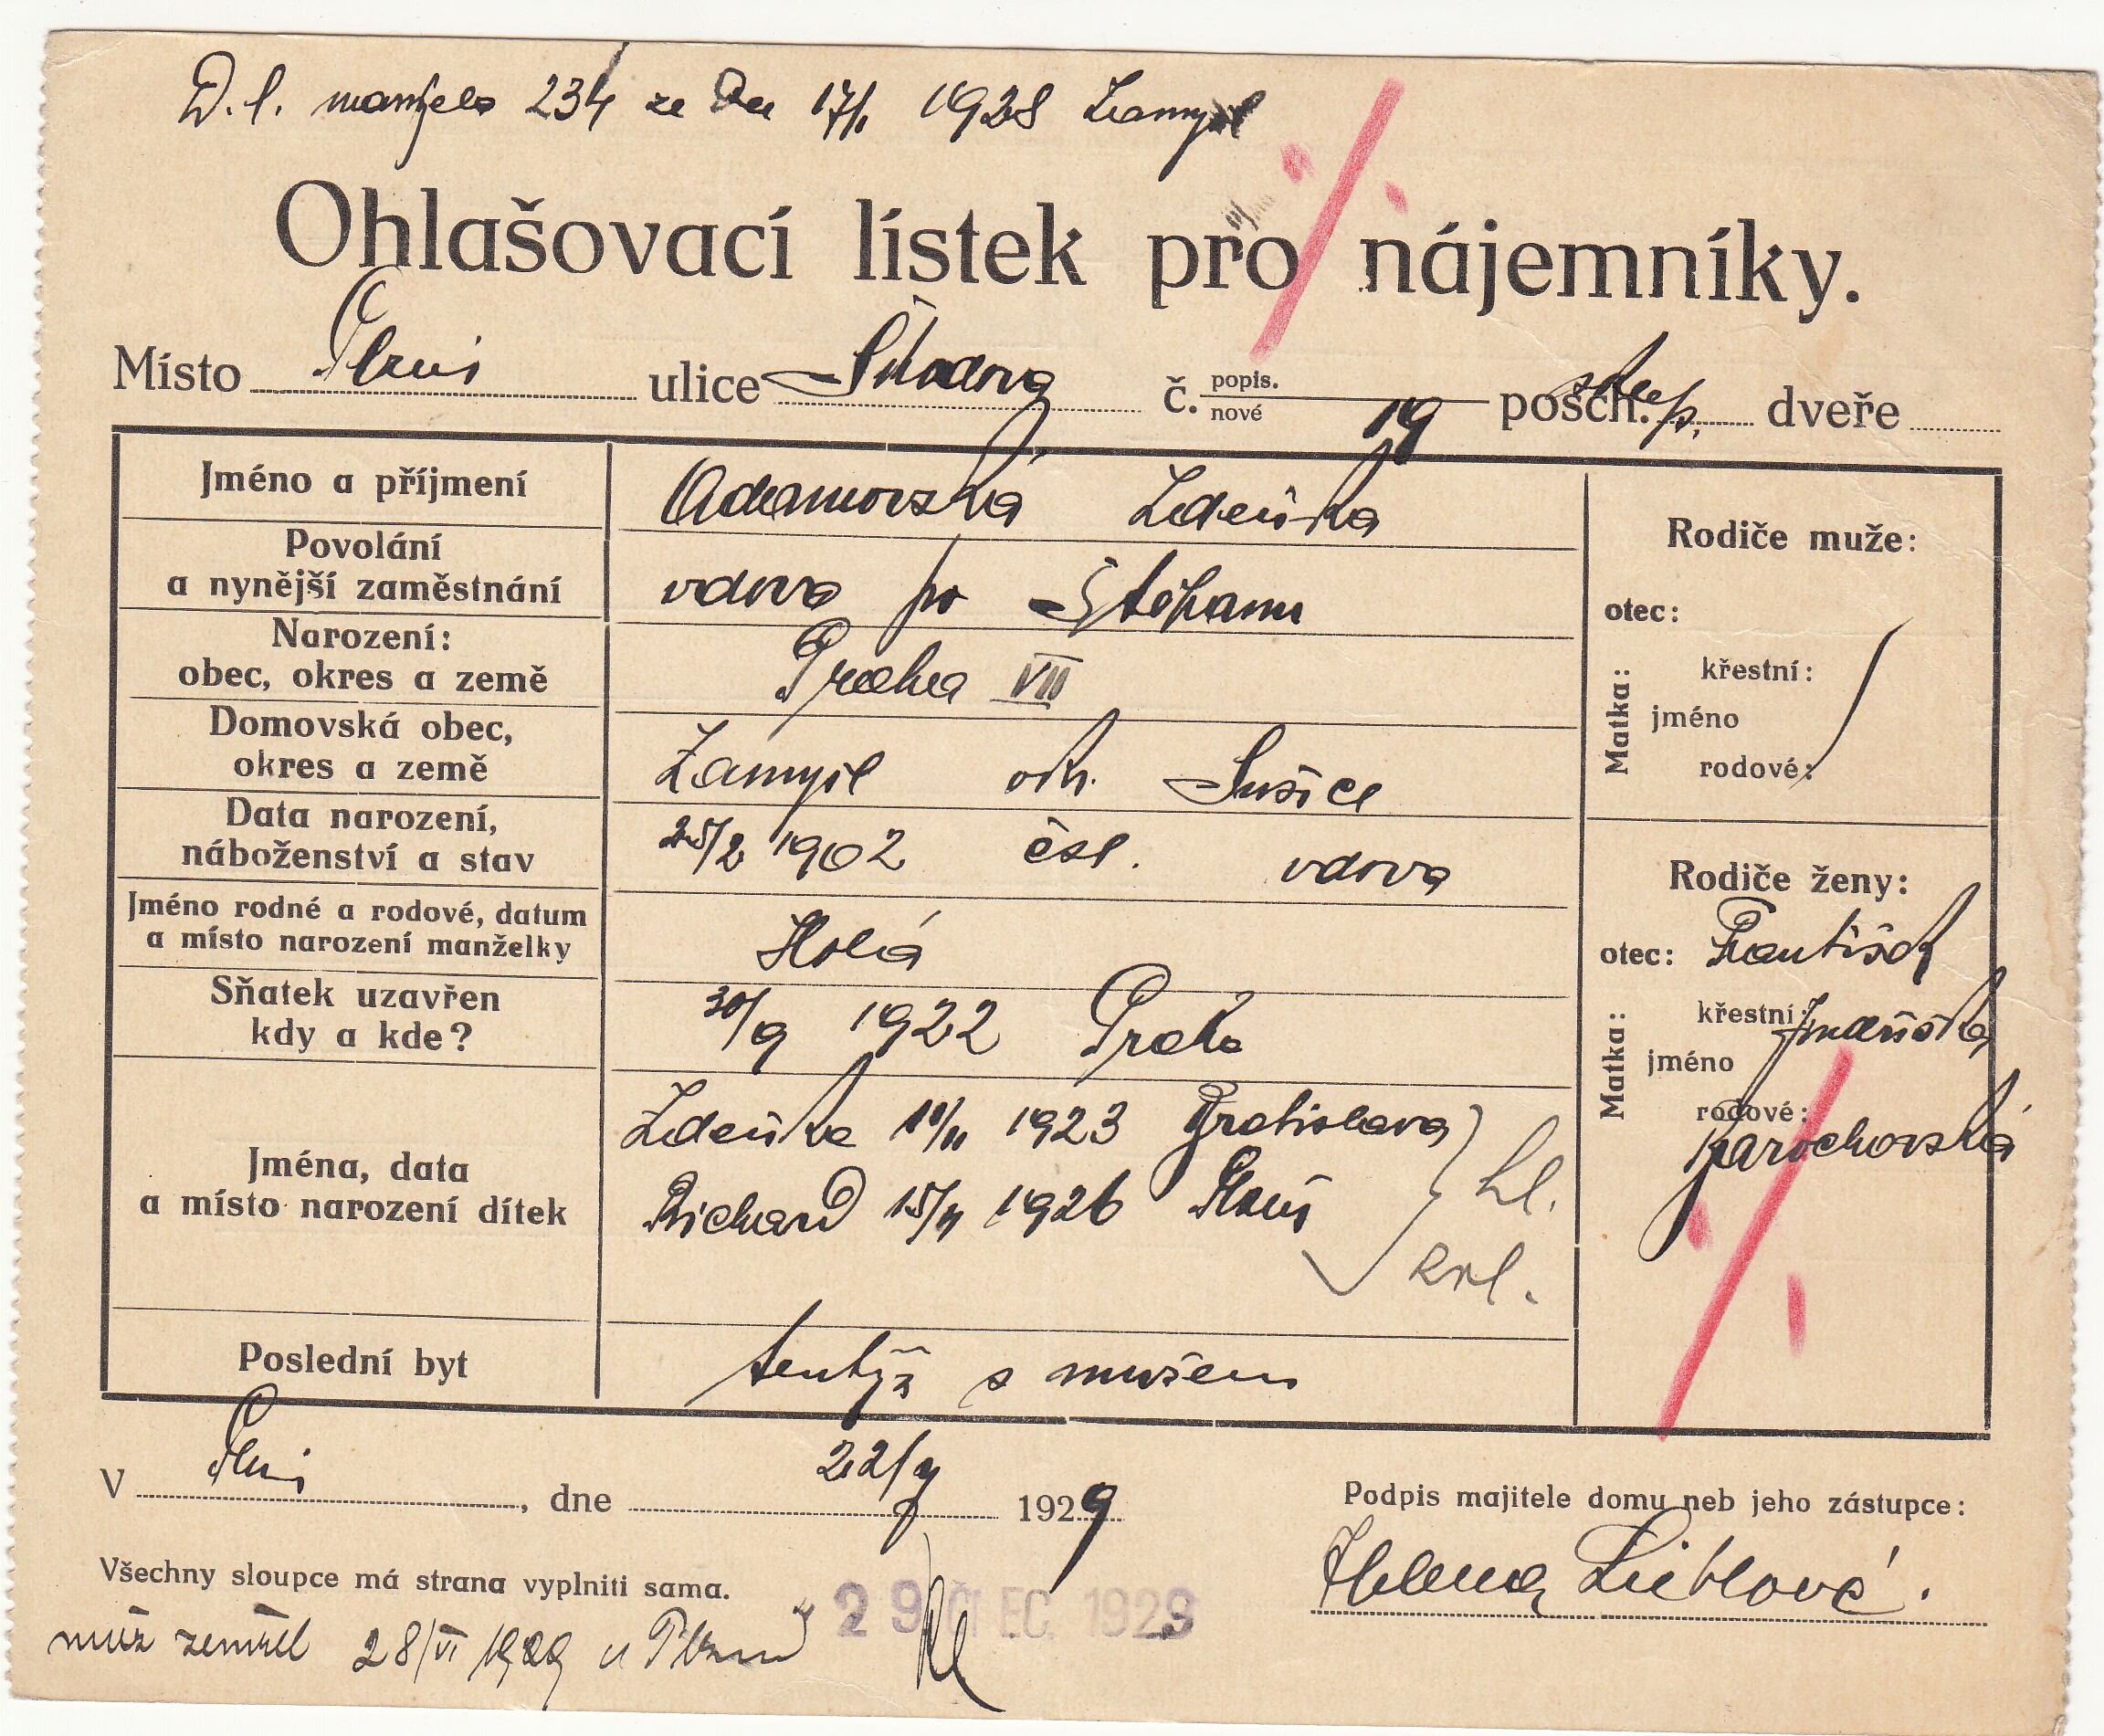 D. l. manžela 234 ze dne 17/1 1928 Zamyšl
Ohlašovací lístek pro nájemníky.
Místo Plzni ulice Škodova č. popis. nové 19 posch. dveře
Jméno a příjmení Adamovská Zdeňka
Povolání a nynější zaměstnání vdova po Štěpánu
Narození: obec, okres a země Praha VII
Domovská obec, okres a země Zamyšl okr. Sušice
Data narození, náboženství a stav 25/2 1902 čsl. vdova
Jméno rodné a rodové, datum a místo narození manželky Holá
Sňatek uzavřen kdy a kde? 30/9 1922 Praha
Jména, data a místo narození dítek
Zdeňka 10/11 1923 Bratislava
Richard 15/4 1926 Plzeň
Poslední byt tentýž s mužem
Rodiče muže:
otec:
Matka: křestní:
jméno
rodové:
Rodiče ženy:
otec: František
Matka: křestní:
jméno
rodové:
V Plzni, dne 22/7 1929
Podpis majitele domu neb jeho zástupce:
Helena
Všechny sloupce má strana vyplniti sama.
29. ČEC. 1929
muž zemřel 28/VI 1929 v Plzni